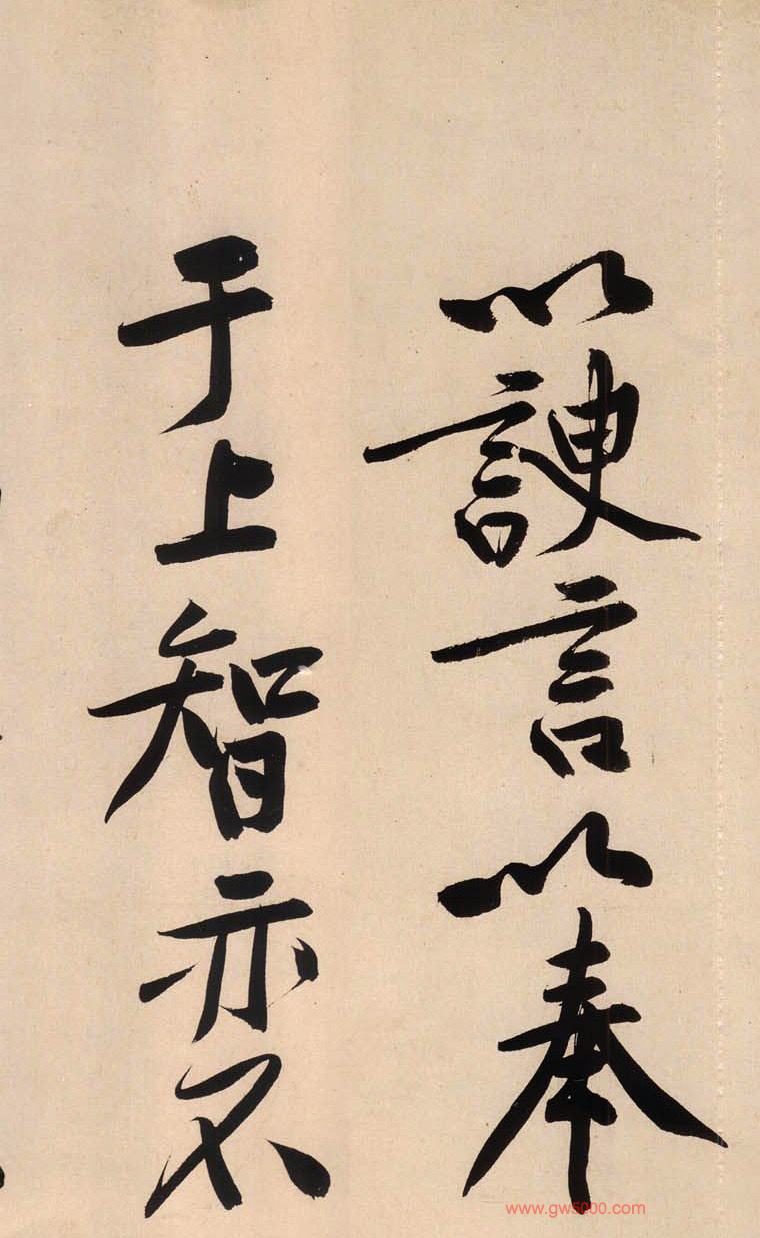 以諛言以奉
于上智亦不
www.gw5000.com